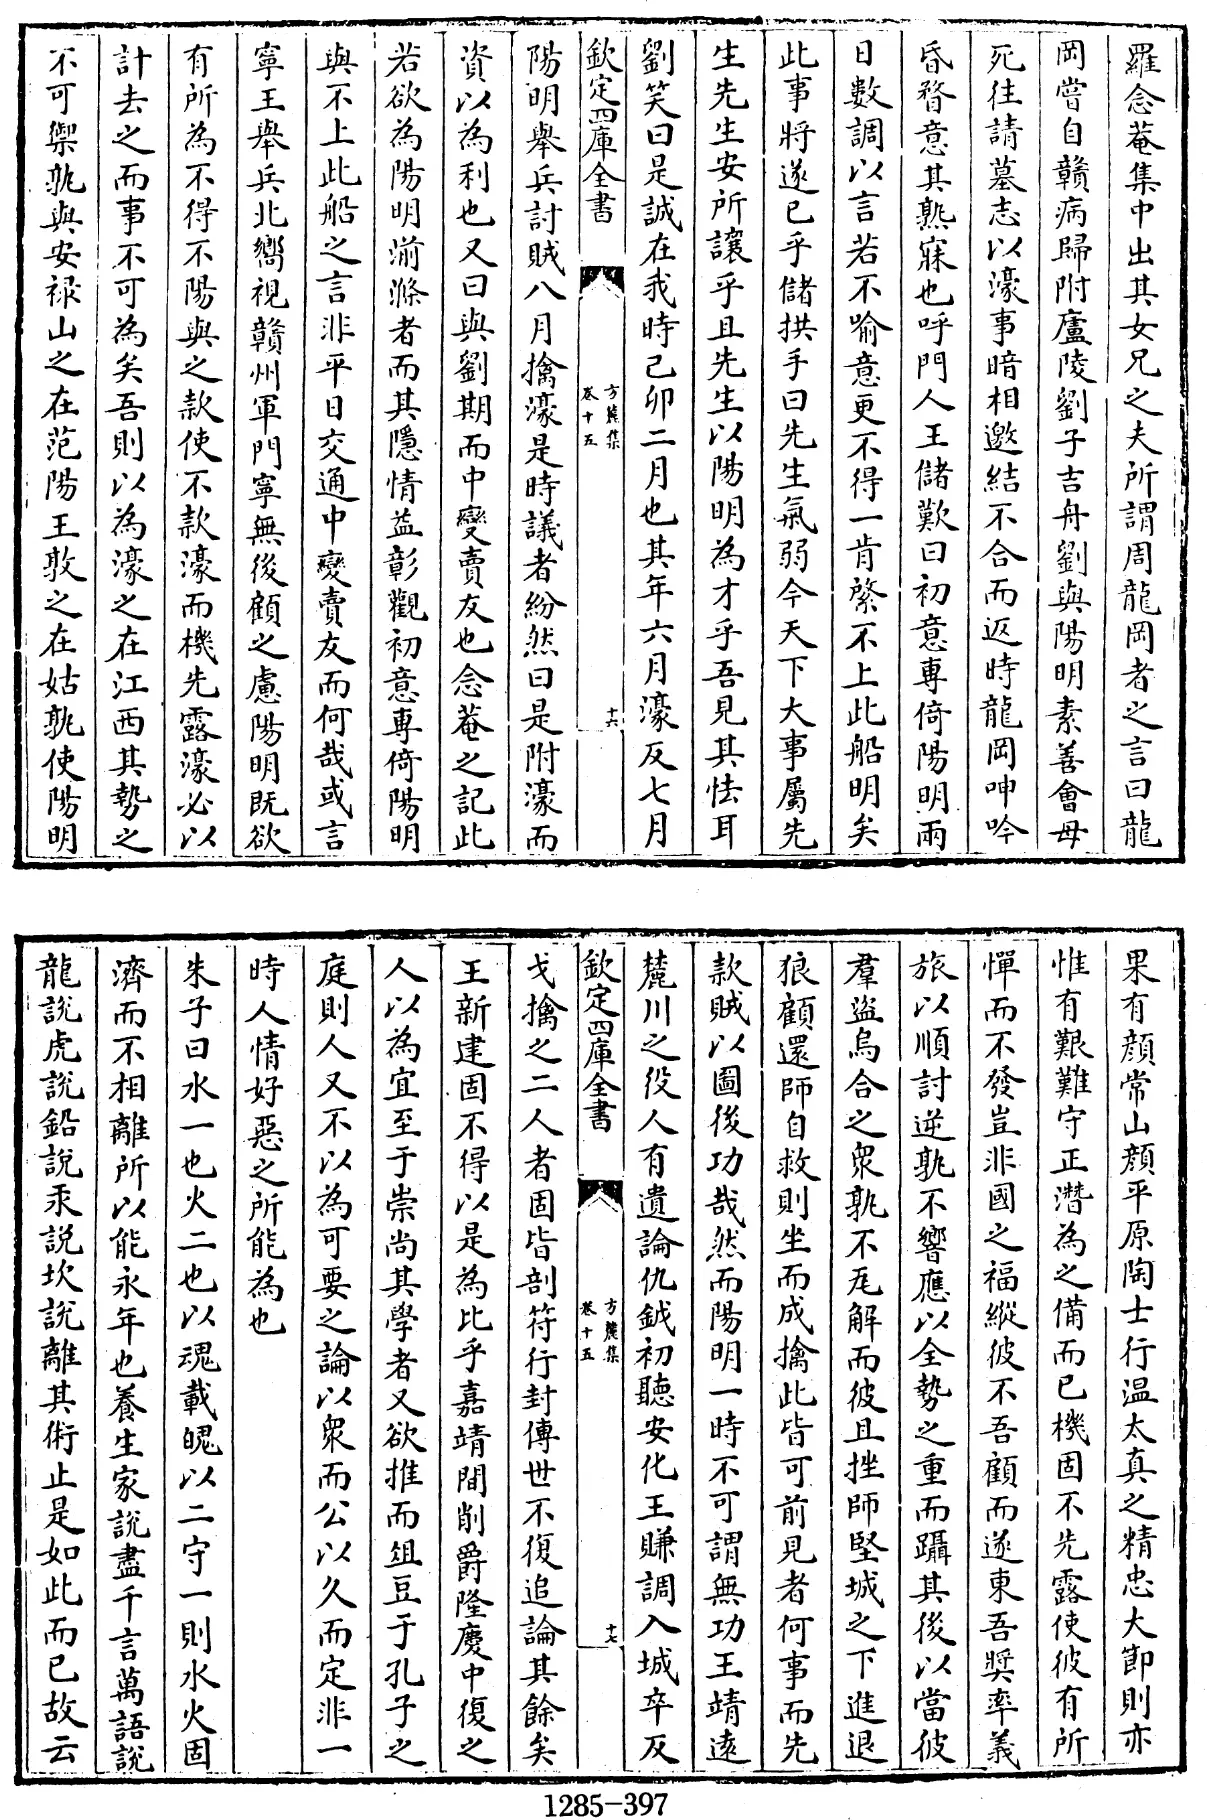 羅念菴集中出其女兄之夫所謂周龍岡者之言曰龍
岡嘗自贛病歸附廬陵劉子吉舟劉與陽明素善會母
死往請墓志以濠事暗相邀結不合而返時龍岡呻吟
昏瞀意其熟寐也呼門人王儲歎曰初意專倚陽明兩
日數調以言若不喻意更不得一肯綮不上此船明矣
此事將遂已乎儲拱手曰先生氣弱今天下大事屬先
生先生安所讓乎且先生以陽明為才乎吾見其怯耳
劉笑曰是誠在我時己卯二月也其年六月濠反七月
欽定四庫全書
方麓集
卷十五
十六
陽明舉兵討賊八月擒濠是時議者紛然曰是附濠而
資以為利也又曰與劉期而中變賣友也念菴之記此
若欲為陽明湔滌者而其隱情益彰觀初意專倚陽明
與不上此船之言非平日交通中變賣友而何哉或言
寧王舉兵北嚮視贛州軍門寧無後顧之慮陽明既欲
有所為不得不陽與之款使不款濠而機先露濠必以
計去之而事不可為矣吾則以為濠之在江西其勢之
不可禦孰與安祿山之在范陽王敦之在姑孰使陽明
果有顏常山顏平原陶士行溫太真之精忠大節則亦
惟有艱難守正潛為之備而已機固不先露使彼有所
憚而不發豈非國之福縱彼不吾顧而遂東吾奬率義
旅以順討逆孰不響應以全勢之重而躡其後以當彼
羣盜烏合之衆孰不瓦解而彼且挫師堅城之下進退
狼顧還師自救則坐而成擒此皆可前見者何事而先
款賊以圖後功哉然而陽明一時不可謂無功王靖遠
麓川之役人有遺論仇鉞初聽安化王賺調入城卒反
欽定四庫全書
方麓集
卷十五
十七
戈擒之二人者固皆剖符行封傳世不復追論其餘矣
王新建固不得以是為比乎嘉靖間削爵隆慶中復之
人以為宜至于崇尚其學者又欲推而俎豆于孔子之
庭則人又不以為可要之論以衆而公以久而定非一
時人情好惡之所能為也
朱子曰水一也火二也以魂載魄以二守一則水火固
濟而不相離所以能永年也養生家說盡千言萬語說
龍說虎說鉛說汞說坎說離其術止是如此而已故云
1285-397